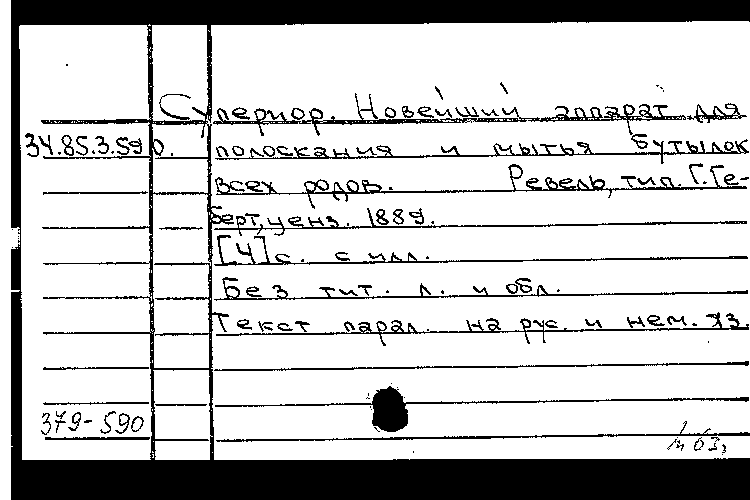 Супериор. Новейший аппарат для
34.85.3.590. полоскания и мытья бутылок
всех родов. Ревель, тип. Г. Ге-
берт, ценз. 1889.
[4] с. с илл.
Без тит. л. и обл.
Текст парал. на рус. и нем. яз.
379-590